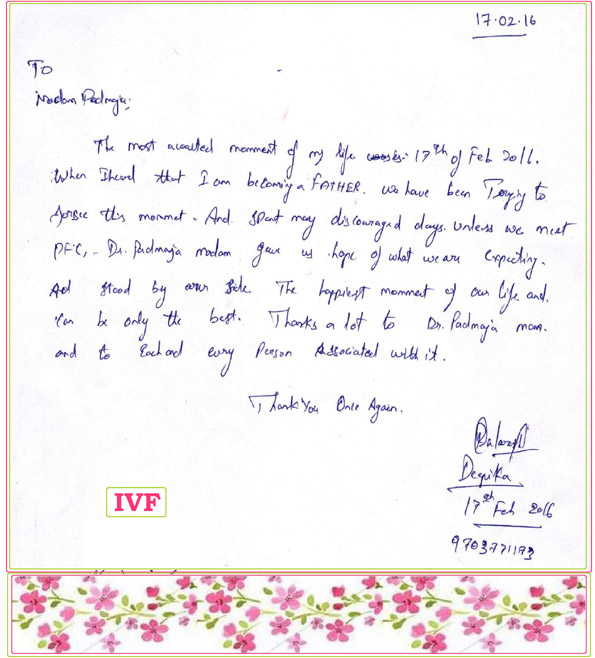 17.02.16
To
Madam Padmaja,
The most awaited momment of my life 17th of Feb 2016.
When I heard that I am becoming a FATHER. we have been Trying to
this mommet. And spent may discouraged days. Unless we meet
PFC, - Dr. Padmaja madam gave us hope of what we are expecting.
And stood by our side. The happiest momment of our life and.
Can be only the best. Thanks a lot to Dr. Padmaja mam.
and to Each and every Person Associated with it.
Thank You Once Again.
Deepika
17th Feb 2016
9703771173
IVF